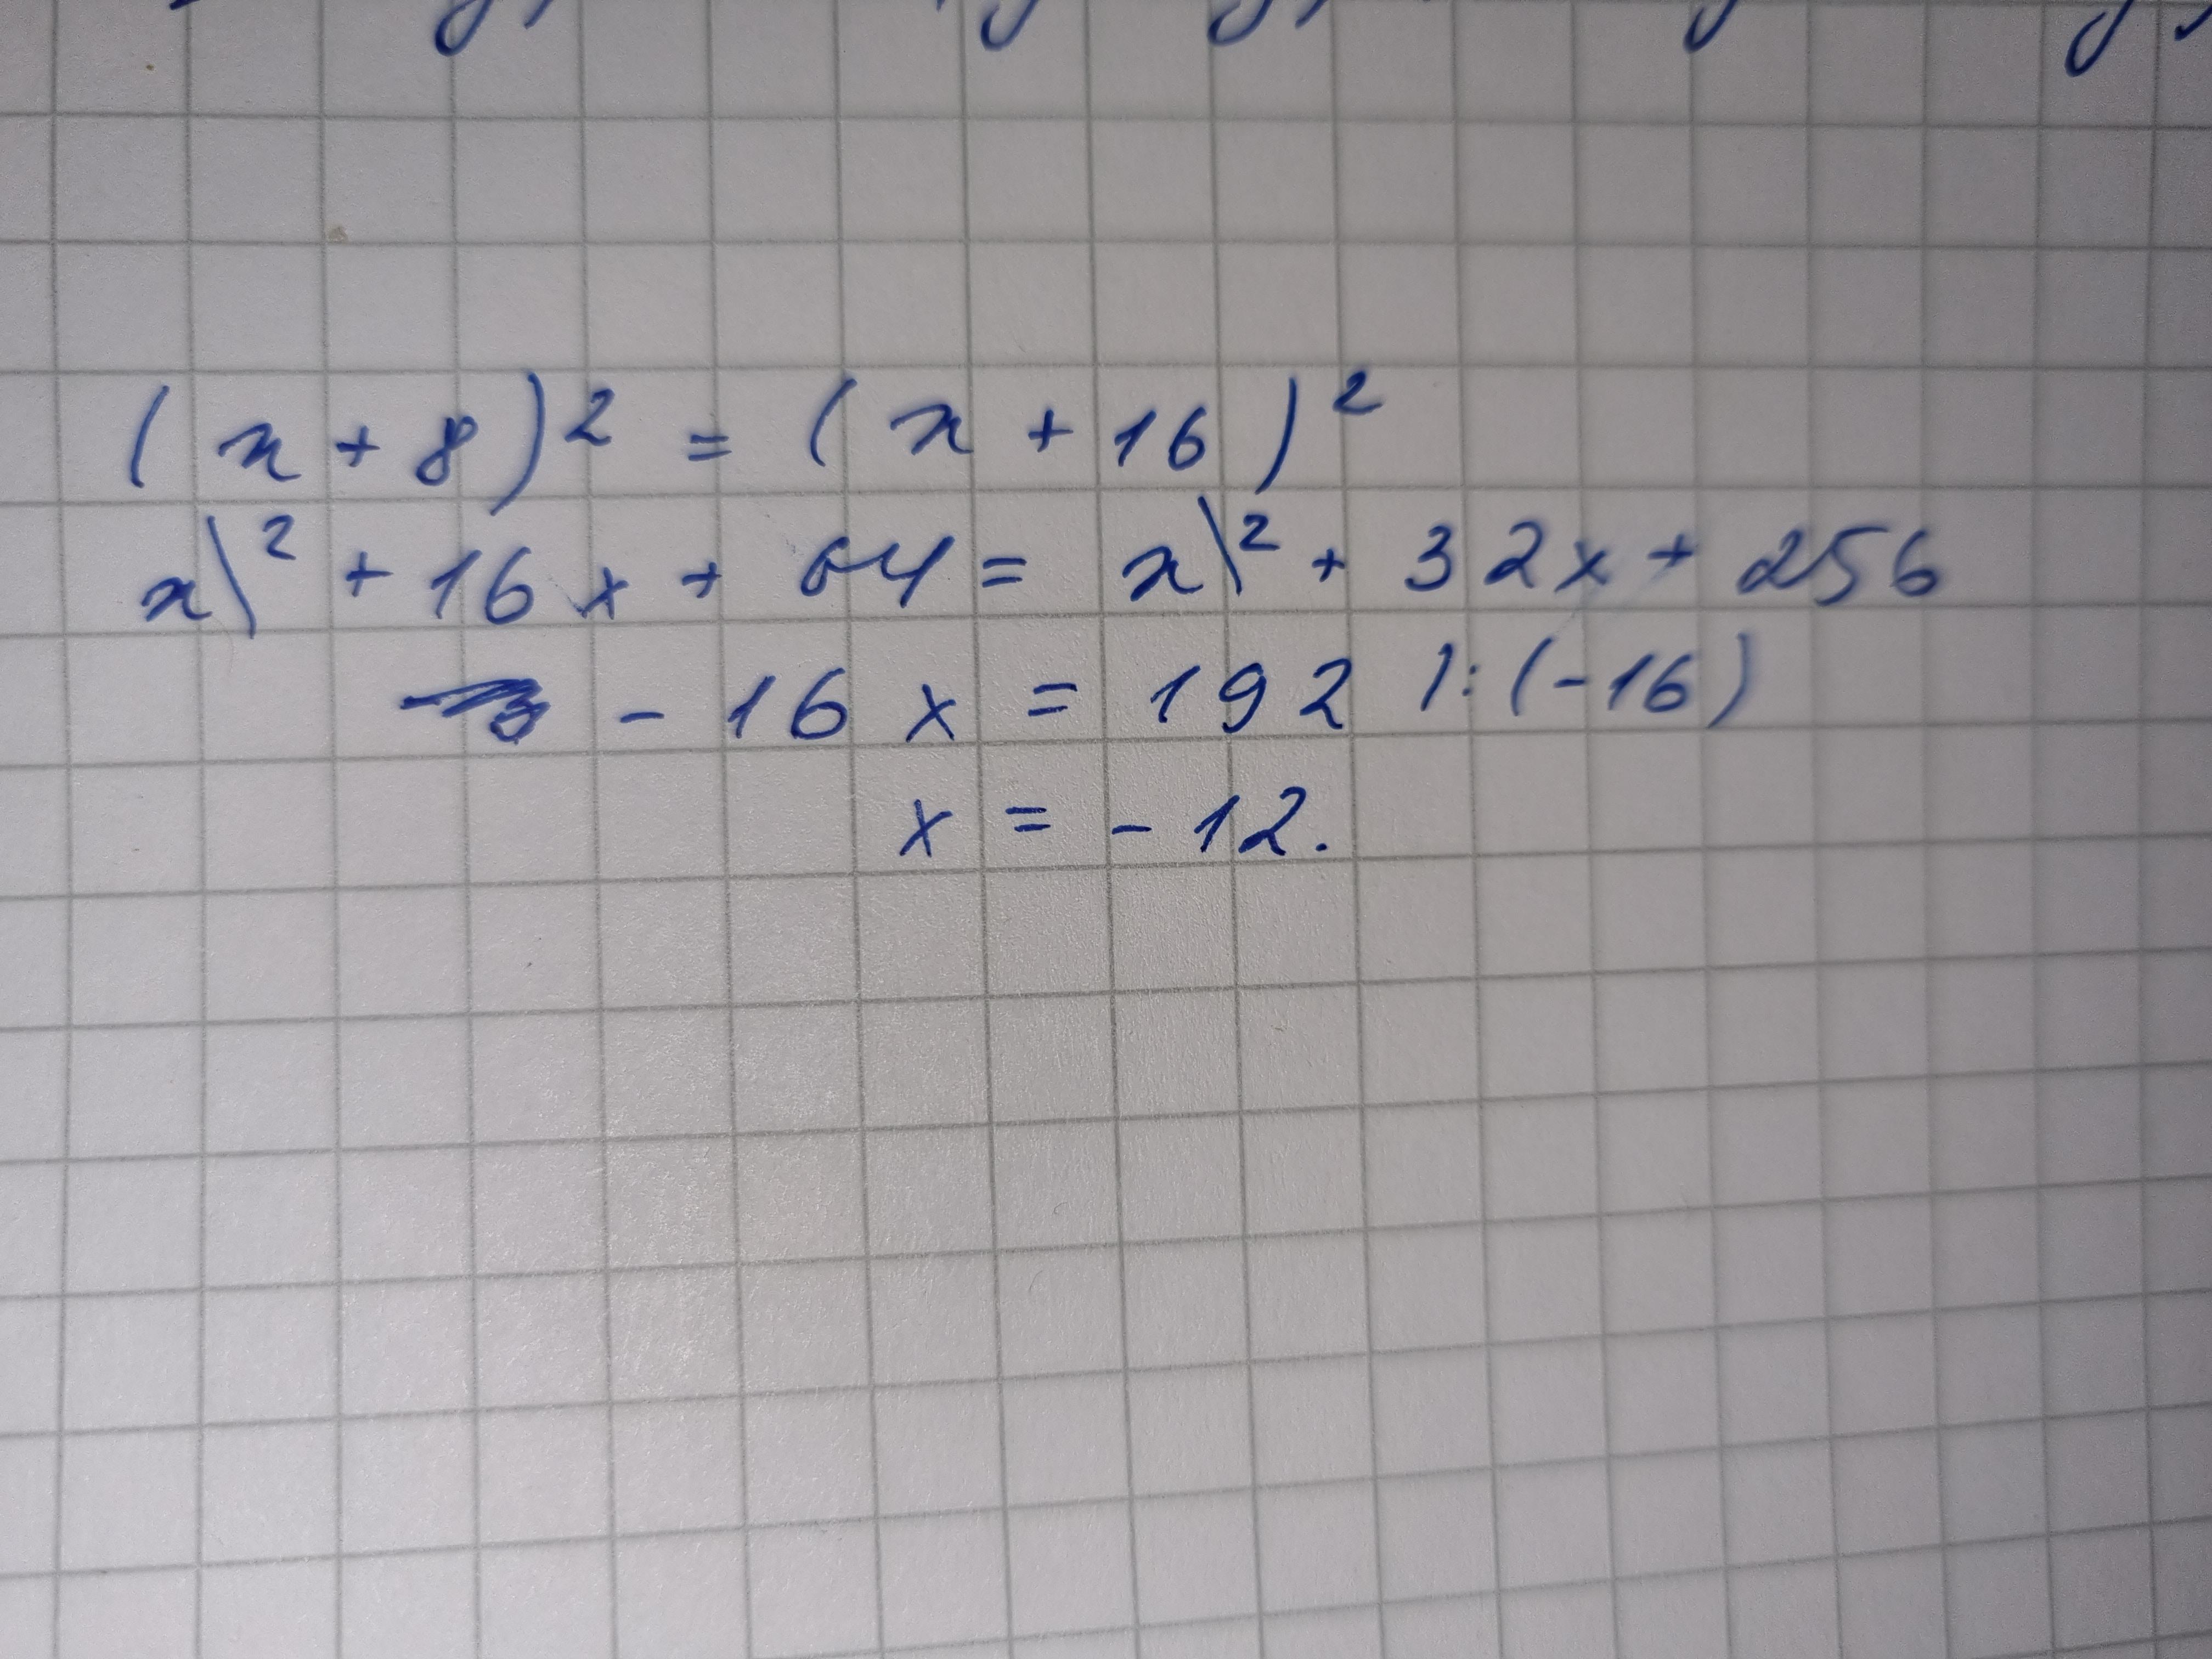 (x+8)² = (x+16)²
x\² + 16x + 64 = x\² + 32x + 256
- 16x = 192 |:(-16)
x = -12.